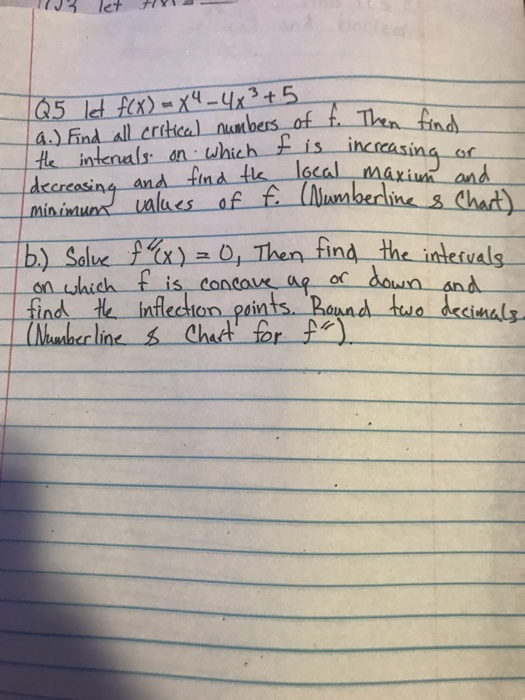 let
and
Q5 let f(x) = x⁴ - 4x³ + 5
a.) Find all critical numbers of f. Then find
the intervals on which f is increasing or
decreasing and find the local maxium and
minimum values of f. (Numberline & Chart)
b.) Solve f"(x) = 0, Then find the intervals
on which f is concave up or down and
find the inflection points. Round two decimals.
(Numberline & Chart for f").